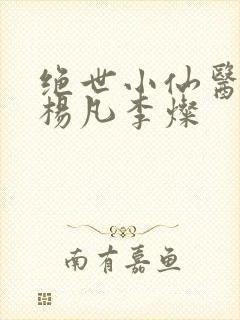 绝世小仙醫
楊凡李燦
南有嘉鱼